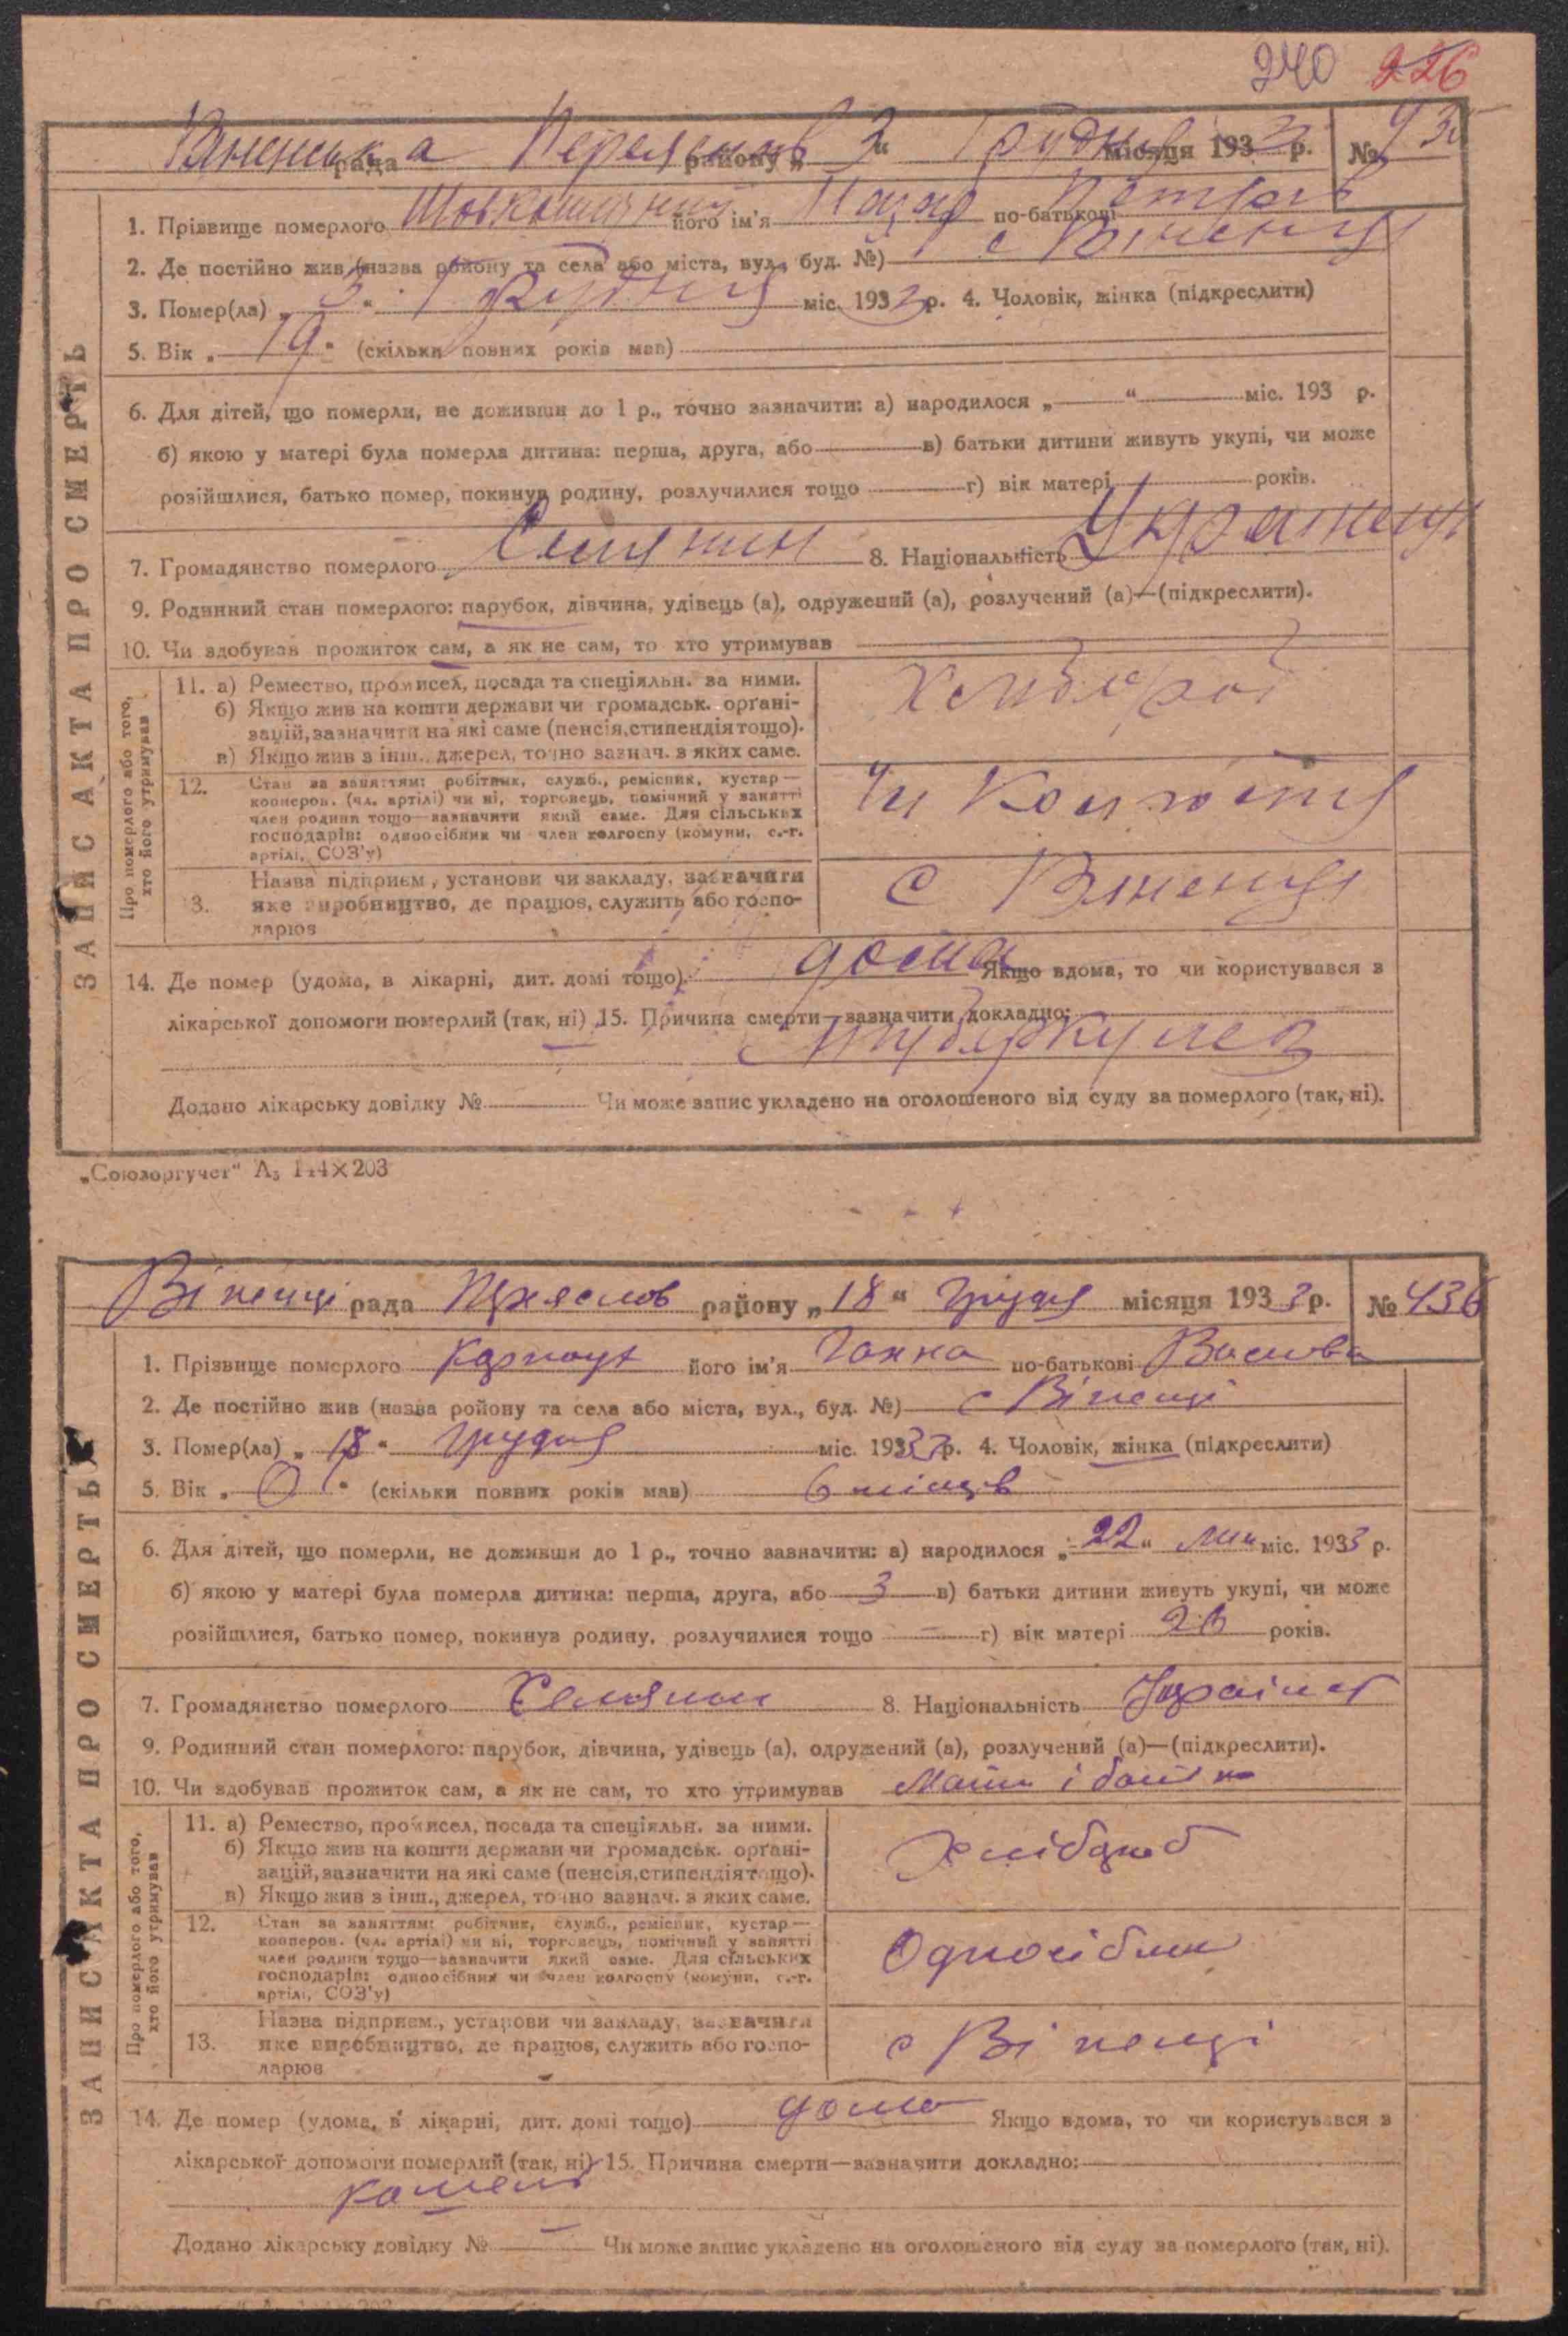 240 226
рада району „ 3 “ Грудня місяця 1933 р. № 435
1. Прізвище померлого його ім'я по-батькові Петров
2. Де постійно жив (назва району та села або міста, вул., буд. №) с Віненці
3. Помер(ла) „ 3 “ Грудня міс. 1933 р. 4. Чоловік, жінка (підкреслити)
5. Вік „ 19 “ (скільки повних років мав)
6. Для дітей, що померли, не доживши до 1 р., точно зазначити: а) народилося „ “ міс. 193 р.
б) якою у матері була померла дитина: перша, друга, або в) батьки дитини живуть укупі, чи може
розійшлися, батько помер, покинув родину, розлучилися тощо г) вік матері років.
7. Громадянство померлого Селянин 8. Національність Українець
9. Родинний стан померлого: парубок, дівчина, удівець (а), одружений (а), розлучений (а)—(підкреслити).
10. Чи здобував прожиток сам, а як не сам, то хто утримував
ЗАПИС АКТА ПРО СМЕРТЬ
Про померлого або того, хто його утримував
11. а) Ремество, промисел, посада та спеціяльн. за ними.
б) Якщо жив на кошти держави чи громадськ. орґані-
зацій, зазначити на які саме (пенсія, стипендія тощо).
в) Якщо жив з інш., джерел, точно зазнач. з яких саме.
Хлібороб
12. Стан за заняттям: робітник, служб., ремісник, кустар—
кооперов. (чл. артілі) чи ні, торговець, помічний у занятті
член родини тощо—зазначити який саме. Для сільських
господарів: одноосібник чи член колгоспу (комуни, с.-г.
артілі, СОЗ'у)
Чл Колгоспу
13. Назва підприєм., установи чи закладу, зазначити
яке виробництво, де працює, служить або госпо-
дарює
с Віненці
14. Де помер (удома, в лікарні, дит. домі тощо) дома Якщо вдома, то чи користувався з
лікарської допомоги померлий (так, ні) 15. Причина смерти—зазначити докладно:
туберкулез
Додано лікарську довідку № Чи може запис укладено на оголошеного від суду за померлого (так, ні).
„Союзоргучет“ А₅ 144×203
Віненці рада району „ 18 “ Грудня місяця 1933 р. № 436
1. Прізвище померлого Карнаух його ім'я Ганна по-батькові
2. Де постійно жив (назва району та села або міста, вул., буд. №) с Віненці
3. Помер(ла) „ 18 “ Грудня міс. 1933 р. 4. Чоловік, жінка (підкреслити)
5. Вік „ 0 “ (скільки повних років мав) 6 місяців
6. Для дітей, що померли, не доживши до 1 р., точно зазначити: а) народилося „ 22 “ міс. 1933 р.
б) якою у матері була померла дитина: перша, друга, або 3 в) батьки дитини живуть укупі, чи може
розійшлися, батько помер, покинув родину, розлучилися тощо — г) вік матері років.
7. Громадянство померлого Селянин 8. Національність
9. Родинний стан померлого: парубок, дівчина, удівець (а), одружений (а), розлучений (а)—(підкреслити).
10. Чи здобував прожиток сам, а як не сам, то хто утримував Мати і батько
ЗАПИС АКТА ПРО СМЕРТЬ
Про померлого або того, хто його утримував
11. а) Ремество, промисел, посада та спеціяльн. за ними.
б) Якщо жив на кошти держави чи громадськ. орґані-
зацій, зазначити на які саме (пенсія, стипендія тощо).
в) Якщо жив з інш., джерел, точно зазнач. з яких саме.
Хлібороб
12. Стан за заняттям: робітник, служб., ремісник, кустар—
кооперов. (чл. артілі) чи ні, торговець, помічний у занятті
член родини тощо—зазначити який саме. Для сільських
господарів: одноосібник чи член колгоспу (комуни, с.-г.
артілі, СОЗ'у)
Одноосібник
13. Назва підприєм., установи чи закладу, зазначити
яке виробництво, де працює, служить або госпо-
дарює
с Віненці
14. Де помер (удома, в лікарні, дит. домі тощо) дома Якщо вдома, то чи користувався з
лікарської допомоги померлий (так, ні) 15. Причина смерти—зазначити докладно:
кашель
Додано лікарську довідку № — Чи може запис укладено на оголошеного від суду за померлого (так, ні).